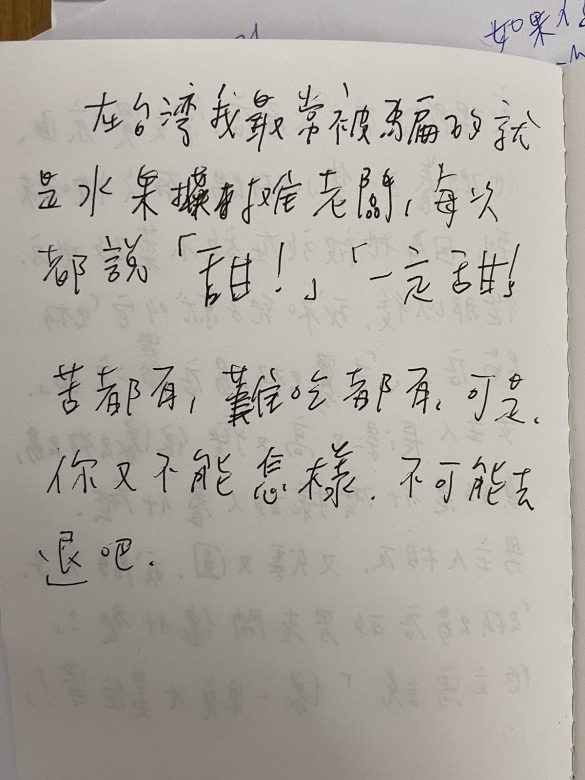 如果
在台湾我最常被騙的就
是水果攤老闆,每次
都說「甜!」「一定甜!
苦都有,難吃都有。可是,
你又不能怎樣.不可能去
退吧.